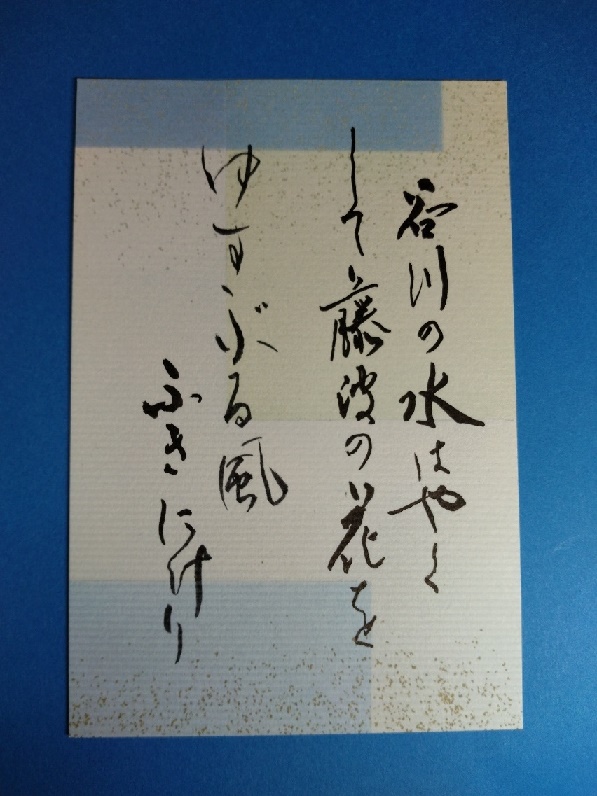 谷川の水はやく
して藤波の花を
ゆすぶる風
ふきにけり